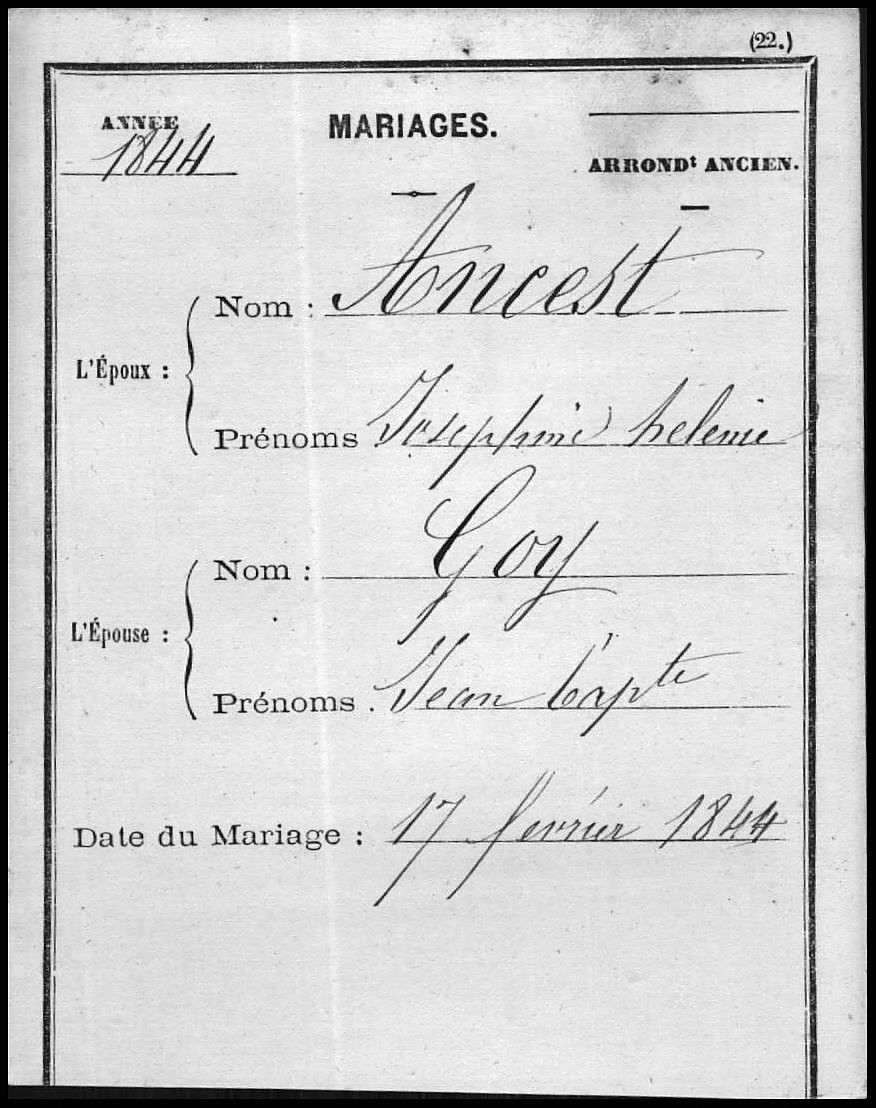 (22.)
ANNÉE
1844
MARIAGES.
ARRONDt ANCIEN.
Nom : Ancest
L'Époux :
Prénoms Josephine helenie
Nom : Goy
L'Épouse :
Prénoms . Jean bapte
Date du Mariage : 17 fevrier 1844